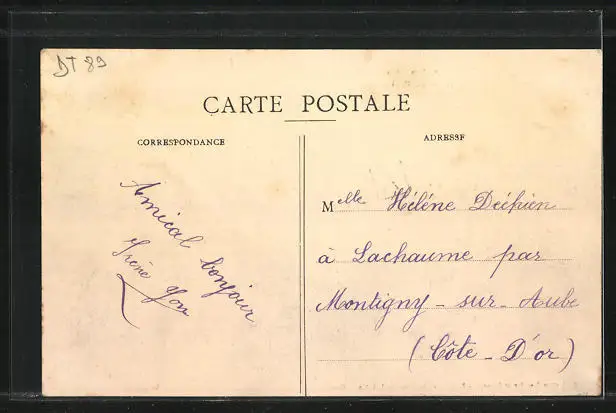 DT 89
CARTE POSTALE
CORRESPONDANCE
ADRESSE
Amical bonjour
Irène Yon
Melle Hélène
à Lachaume par
Montigny - sur - Aube
(Côte - D'or)